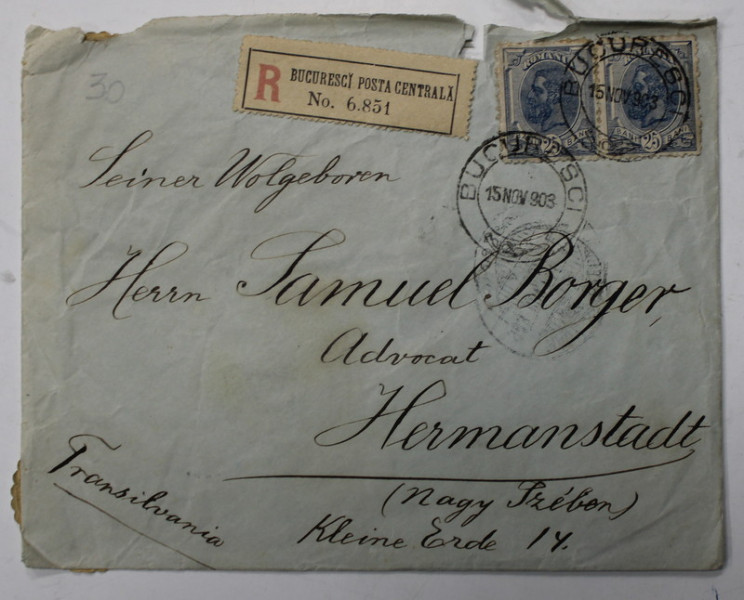 30
R BUCURESCĬ POSTA CENTRALĂ
No. 6.851
ROMANIA
ROMANIA
BUCURESCI
15 NOV 903
25 BANI
BANI 25 BANI
BUCURESCI
15 NOV 903
Seiner Wolgeboren
Herrn Samuel Borger,
Advocat
Hermanstadt
(Nagy Szében)
Transilvania
Kleine Erde 14.